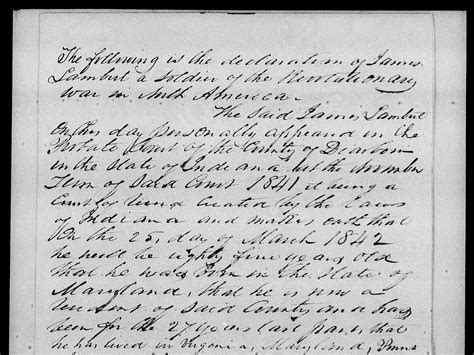 The following is the declaration of James
Lambert a Soldier of the Revolutionary
War in North America.
The Said James Lambert
On this day personally appeared in the
Probate Court of the County of Dearborn
in the State of Indiana at the November
Term of Said Court 1841 it being a
Court of being created by the Laws
of Indiana and makes oath that
On the 25, day of March 1842
he will be eighty five years old
that he was born in the State of
Maryland, that he is now a
resident of Said County, and has
been for the 27 years last past, that
he has lived in Virginia, Maryland, Penns